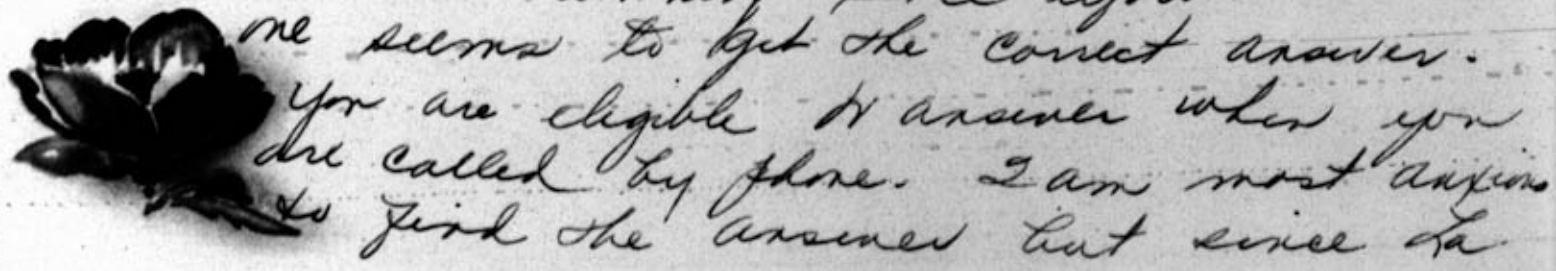 one seems to get the correct answer.
You are eligible to answer when you
are called by phone. I am most anxious
to find the answer but since La